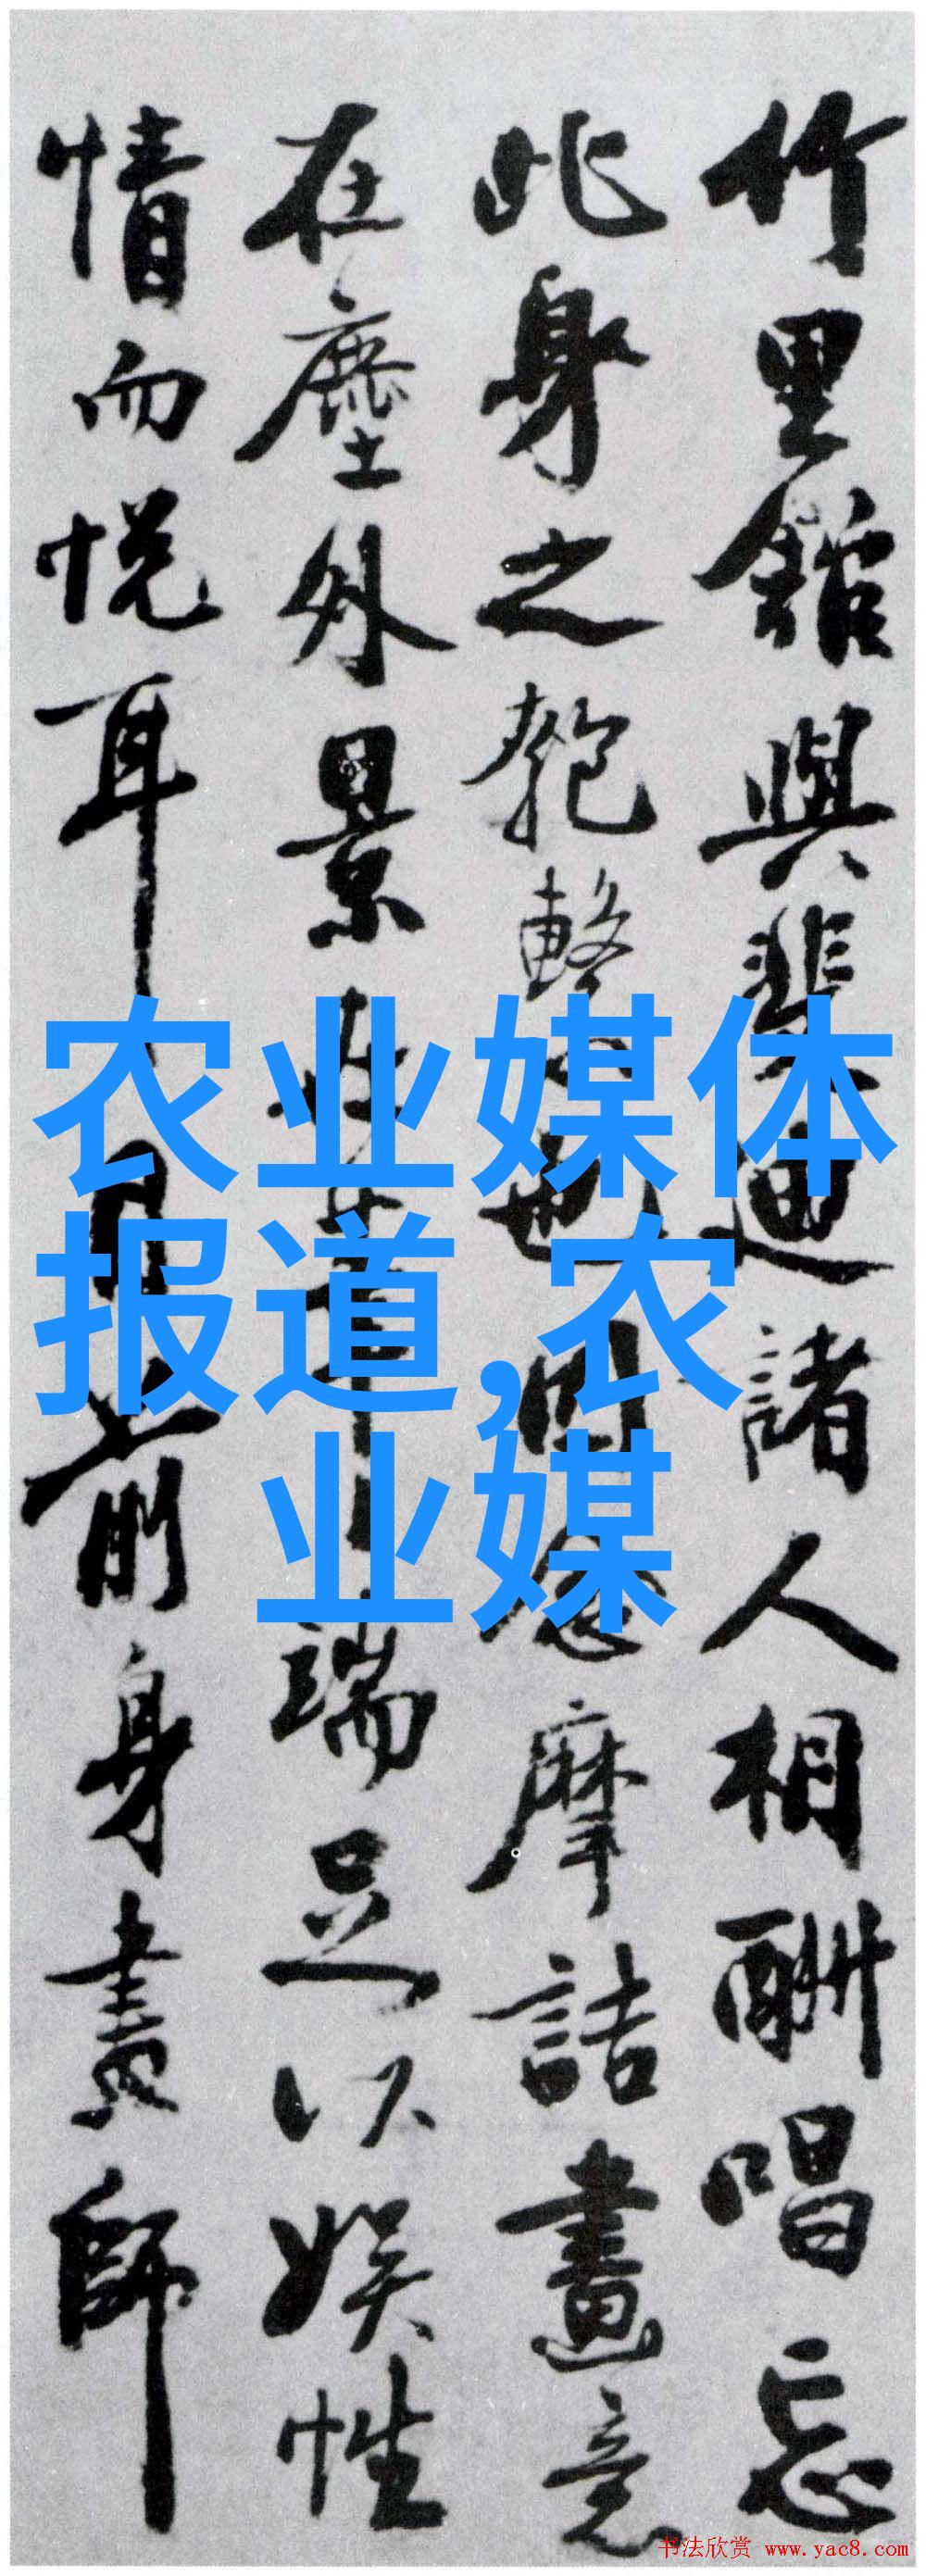 竹里館與裴迪諸人相酬唱忘
此身之匏繫也念摩詰畫意
在塵外景在筆端足以娛性
情而悅耳目前身畫師
农业媒体
报道,农
业媒
书法欣赏 www.yac8.com